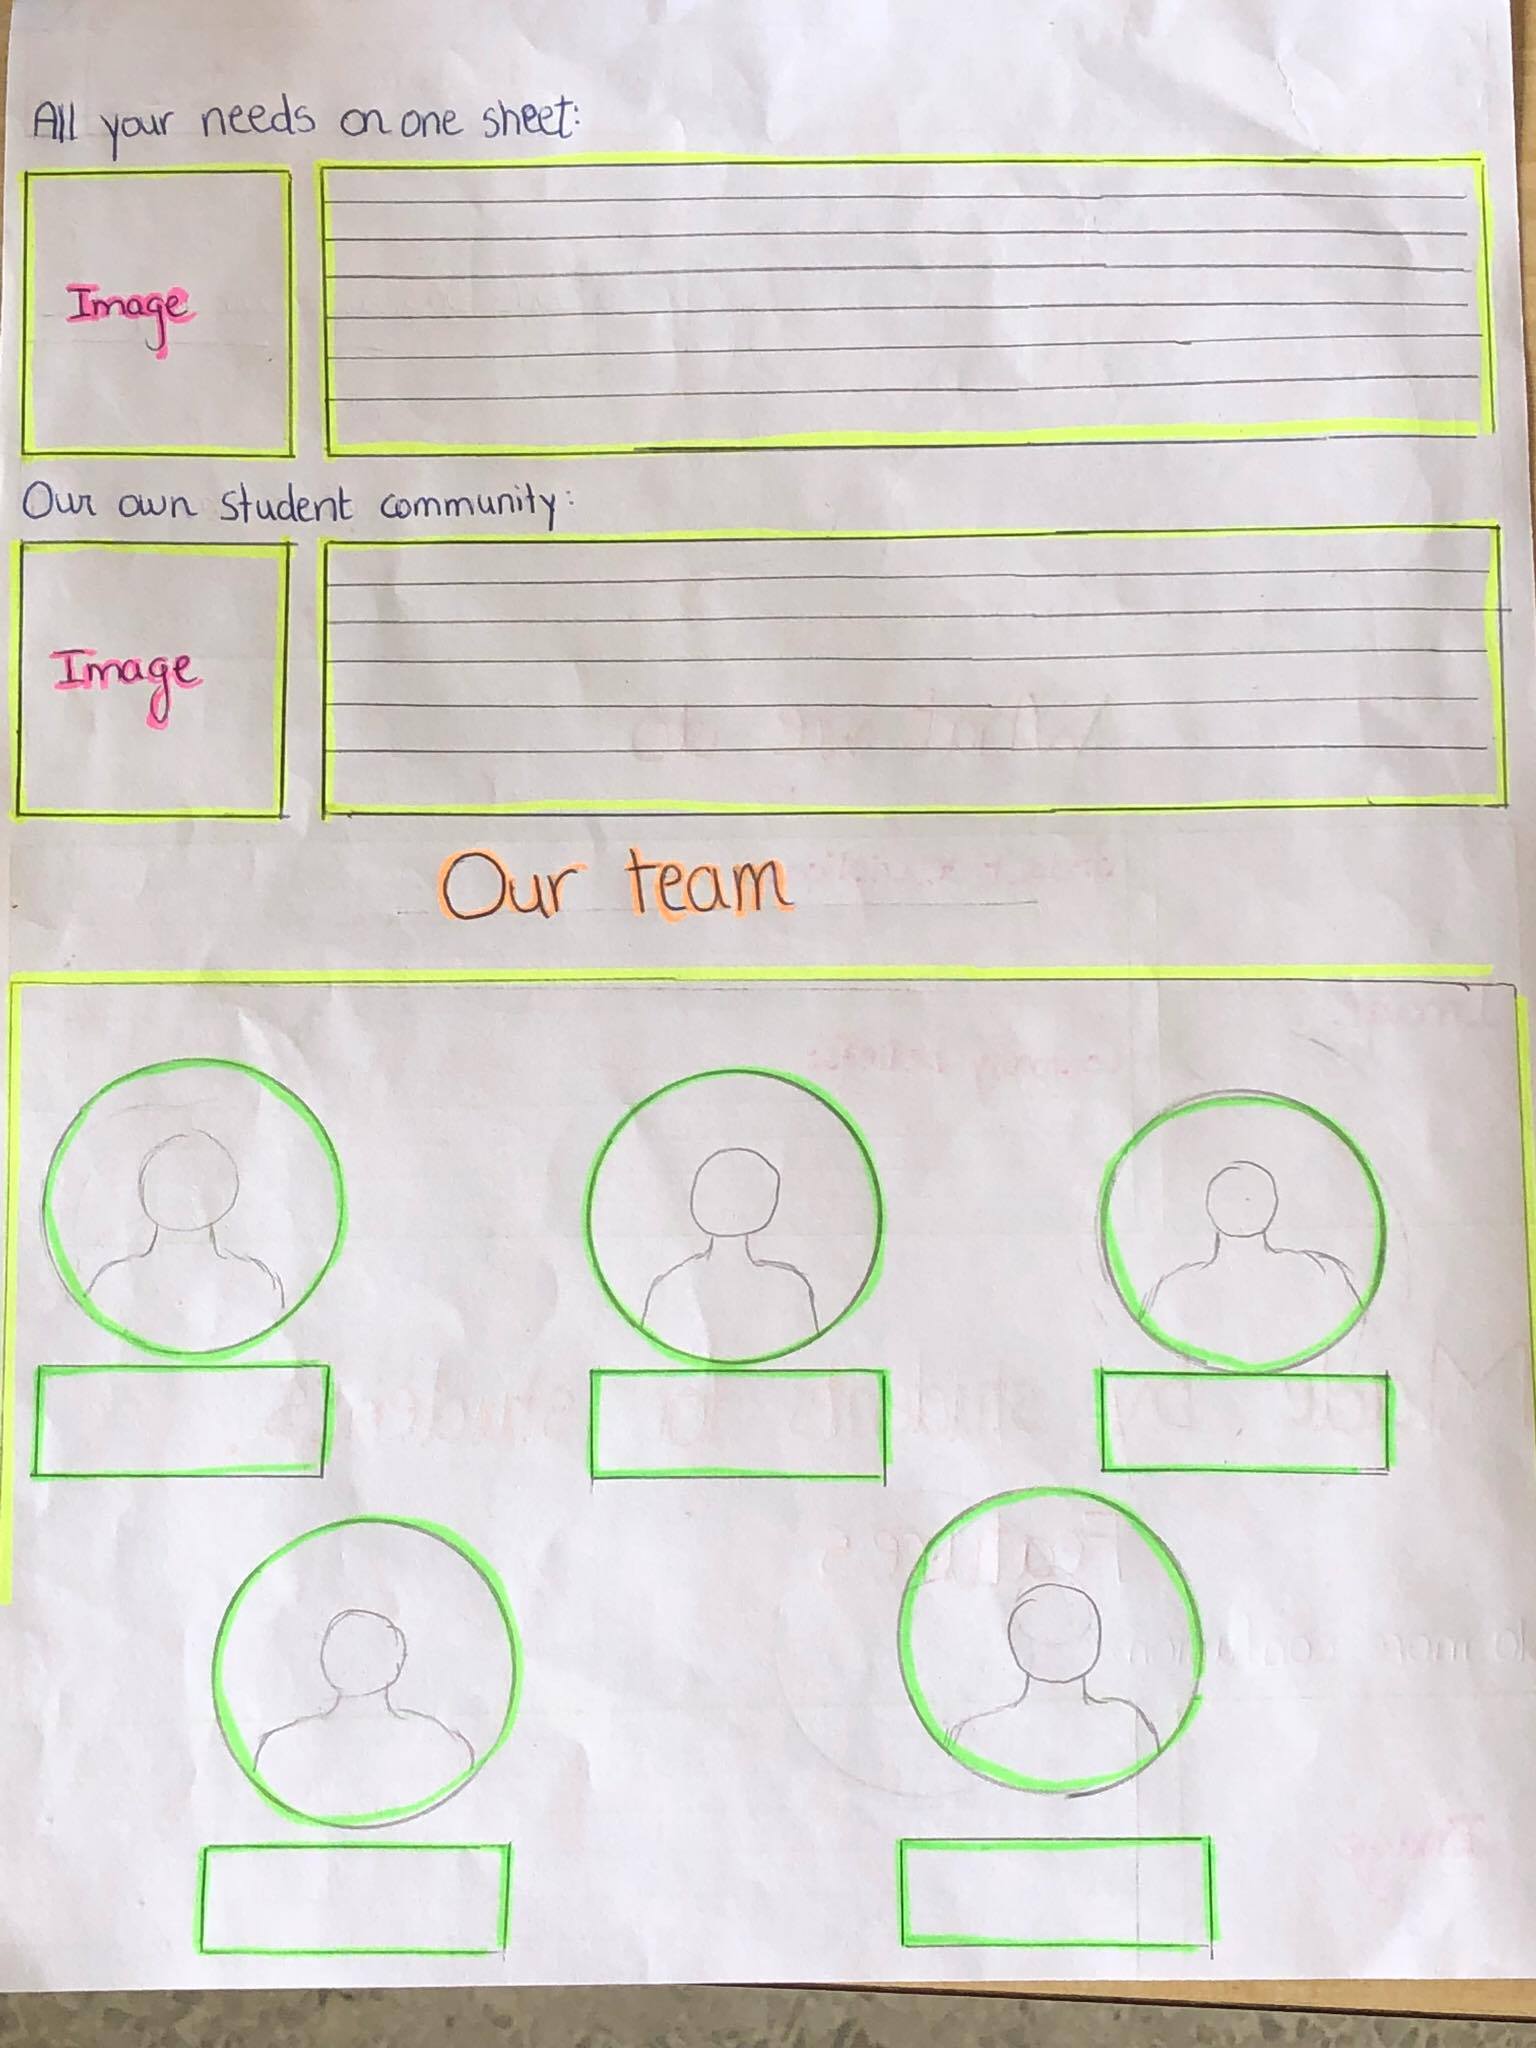 All your needs on one sheet:
Image
Our own student community:
Image
Our team